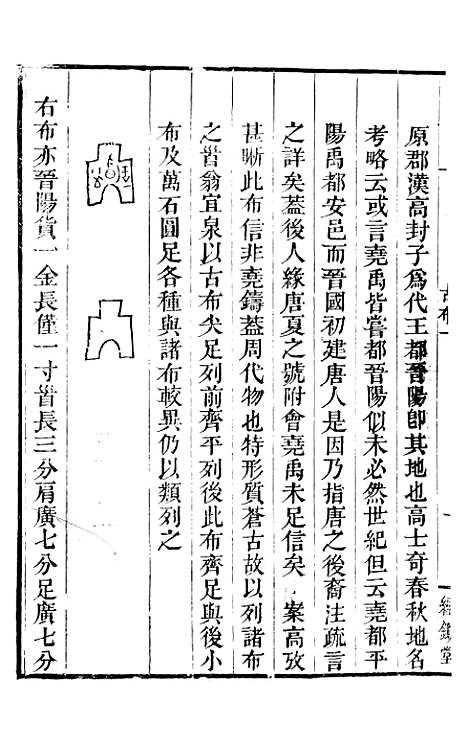 原郡漢高封子爲代王都晉陽卽其地也高士奇春秋地名
考略云或言堯禹皆嘗都晉陽似未必然世紀但云堯都平
陽禹都安邑而晉國初建唐人是因乃指唐之後裔注疏言
之詳矣葢後人緣唐夏之號附會堯禹未足信矣 案高攷
甚晰此布信非堯鑄葢周代物也特形質蒼古故以列諸布
之首翁宜泉以古布尖足列前齊平列後此布齊足與後小
布及萬石圓足各種與諸布較異仍以類列之
右布亦晉陽貨一金長僅一寸首長三分肩廣七分足廣七分
古布一